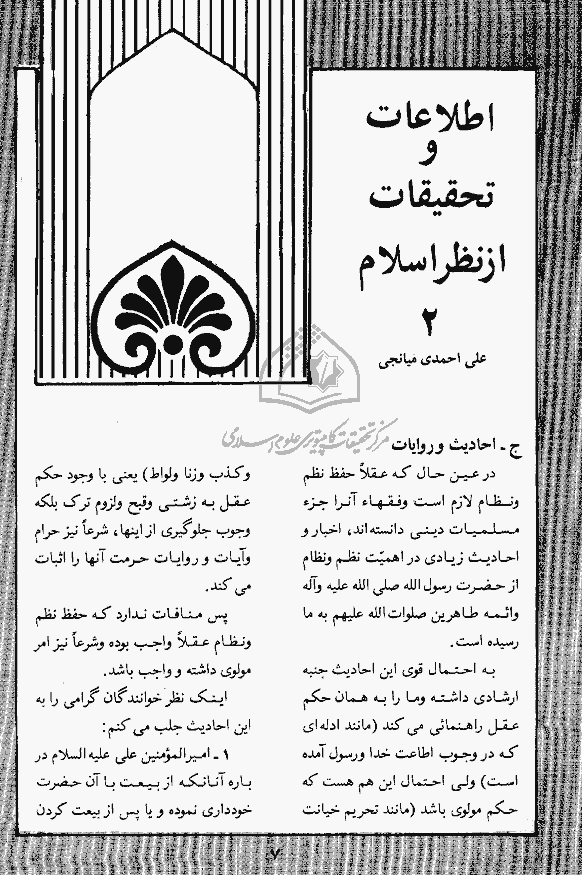 اطلاعات
و
تحقیقات
از نظر اسلام
۲
علی احمدی میانجی
مرکز تحقیقات کامپیوتری علوم اسلامی
ج ـ احادیث و روایات
در عین حال که عقلاً حفظ نظم
ونظام لازم است وفقهاء آنرا جزء
مسلمیات دینی دانسته‌اند، اخبار و
احادیث زیادی در اهمیّت نظم ونظام
از حضرت رسول الله صلی الله علیه وآله
وائمه طاهرین صلوات الله علیهم به ما
رسیده است.
به احتمال قوی این احادیث جنبه
ارشادی داشته وما را به همان حکم
عقل راهنمائی می کند (مانند ادله‌ای
که در وجوب اطاعت خدا ورسول آمده
است) ولی احتمال این هم هست که
حکم مولوی باشد (مانند تحریم خیانت
وکذب وزنا ولواط) یعنی با وجود حکم
عقل به زشتی وقبح ولزوم ترک بلکه
وجوب جلوگیری از اینها، شرعاً نیز حرام
وآیات و روایات حرمت آنها را اثبات
می کند.
پس منافات ندارد که حفظ نظم
ونظام عقلاً واجب بوده وشرعاً نیز امر
مولوی داشته و واجب باشد.
اینک نظر خوانندگان گرامی را به
این احادیث جلب می کنم:
۱ ـ امیرالمؤمنین علی علیه السلام در
باره آنانکه از بیعت با آن حضرت
خودداری نموده و یا پس از بیعت کردن
۷